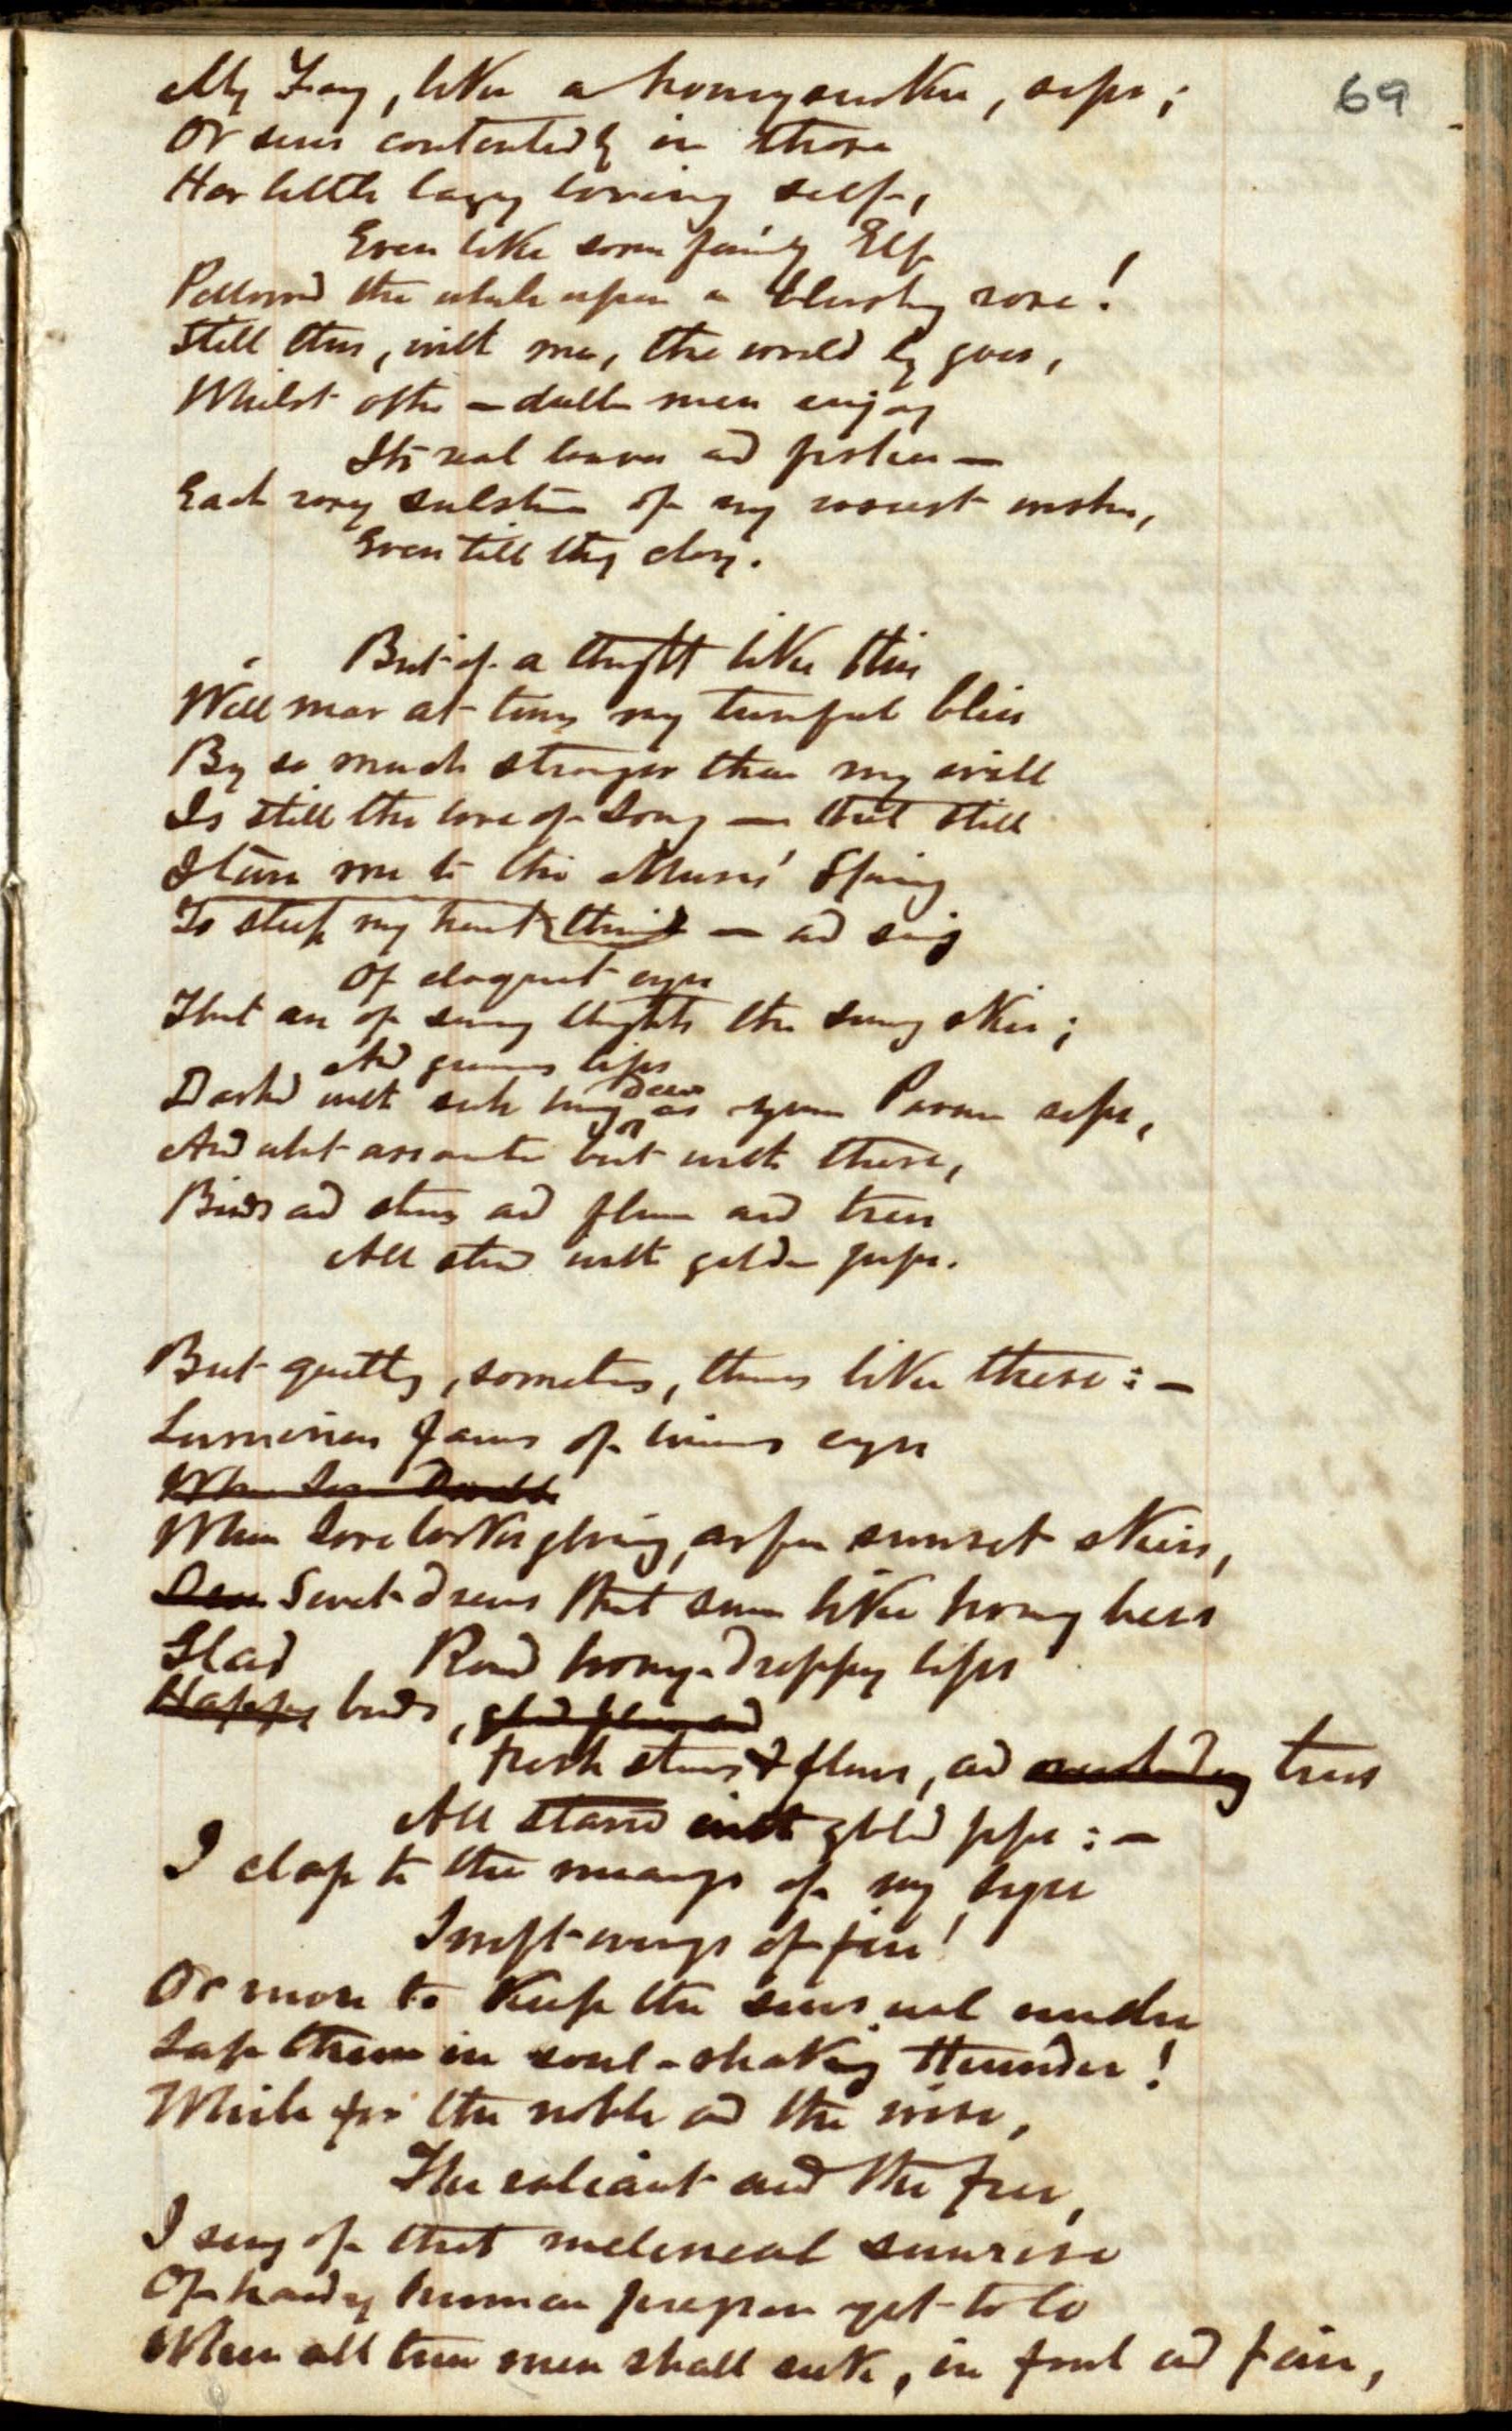 69
My Fancy, like a honeysucker, sips;
Or suns contentedly in those
Her little lazy loving self,
Even like some fairy Elf
Pillowed the while upon a blushing rose!
Still thus, with me, the world by goes,
Whilst other — duller men enjoy
Its real loaves and fishes —
Each rosy substance of my rosiest wishes,
Even till they cloy.
But if a thought like this
Will mar at times my tuneful bliss
By so much stronger than my will
Is still the love of Song — that still
I turn me to the Muses' Spring
To steep my heart therein — and sing
Of eloquent eyes
That are of sunny thoughts the sunny skies;
And lips
Dashed with such honey dew as young Passion sips,
And what assorteth but with these,
Birds and stars and flowers and trees
All stored with golden pips.
But quitting, sometimes, themes like these: —
Luminous of winning eyes
When Love
When Love looks glowing, as from sunset skies,
Dew Sweet dreams that swarm like honey bees
Round honey-dropping lips
Glad
Happy birds, glad flowers and
Fresh stars & flowers, and trees
All starred with gold pips: —
I clap to the meanings of my lyre
Swift wings of fire!
Or more to keep the sensual under
Lap them in soul-shaking thunder!
While for the noble and the wise,
The valiant and the free,
I sing of that millennial sunrise
Of hardy human progress yet to be
When all true men shall seek, in foul and fair,